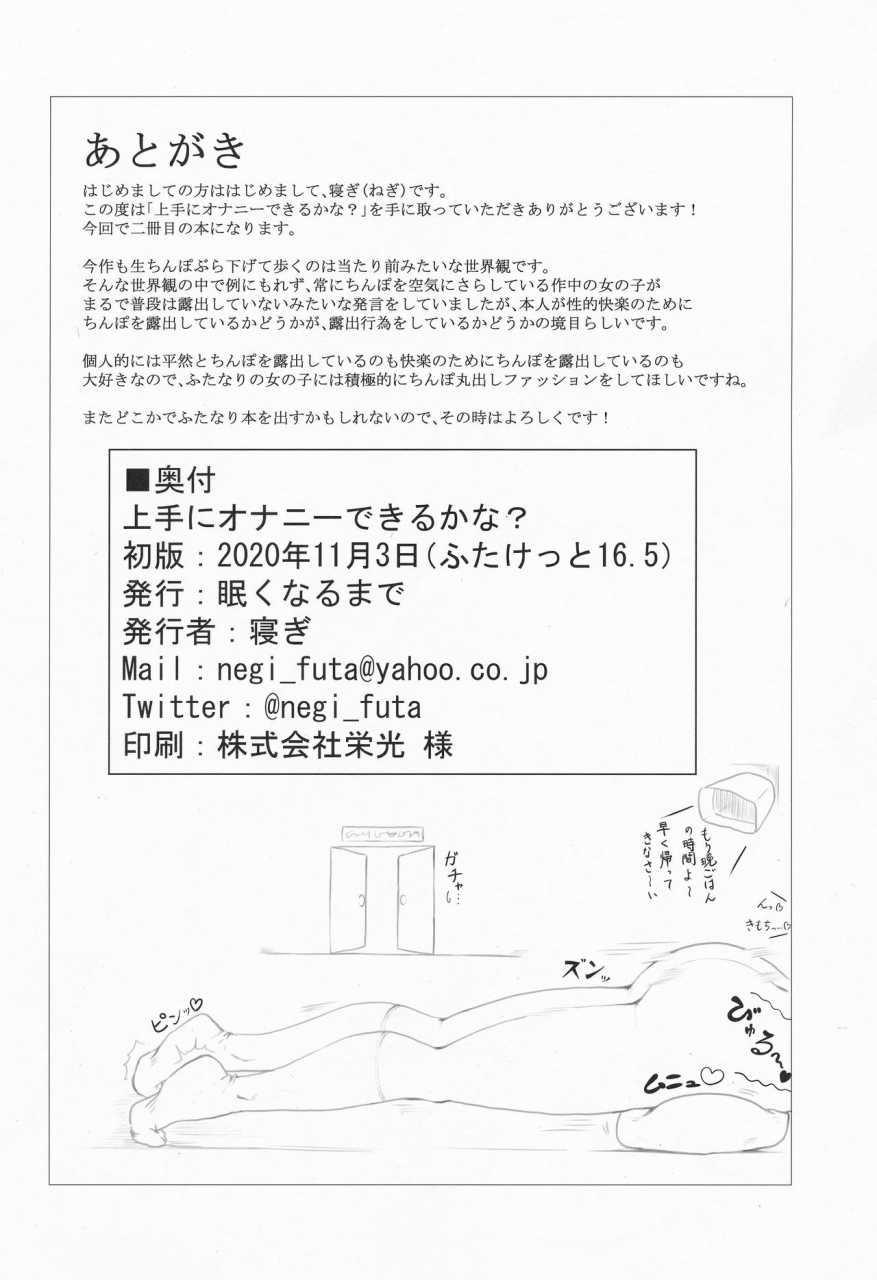 あとがき
はじめましての方ははじめまして、寝ぎ(ねぎ)です。
この度は「上手にオナニーできるかな？」を手に取っていただきありがとうございます！
今回で二冊目の本になります。
今作も生ちんぽぶら下げて歩くのは当たり前みたいな世界観です。
そんな世界観の中で例にもれず、常にちんぽを空気にさらしている作中の女の子が
まるで普段は露出していないみたいな発言をしていましたが、本人が性的快楽のために
ちんぽを露出しているかどうかが、露出行為をしているかどうかの境目らしいです。
個人的には平然とちんぽを露出しているのも快楽のためにちんぽを露出しているのも
大好きなので、ふたなりの女の子には積極的にちんぽ丸出しファッションをしてほしいですね。
またどこかでふたなり本を出すかもしれないので、その時はよろしくです！
■奥付
上手にオナニーできるかな？
初版：2020年11月3日(ふたけっと16.5)
発行：眠くなるまで
発行者：寝ぎ
Mail：negi_futa@yahoo.co.jp
Twitter：@negi_futa
印刷：株式会社栄光 様
もう晩ごはん
の時間よ～
早く帰って
きなさ～い
ガチャ…
んっ♡
きもちっ…♡
ズンッ
ピンッ♡
びゅる～♥
ムニュ♡